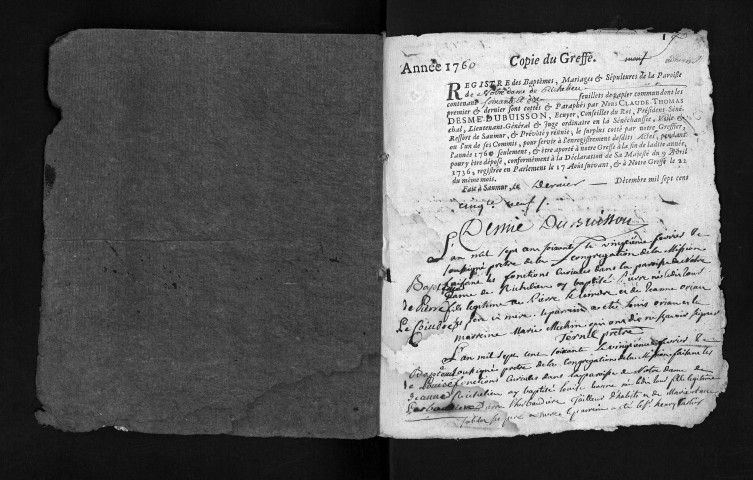 Année 1760 Copie du Greffe.
REGISTRE des Baptêmes, Mariages & Sépultures de la Paroisse
de Notre Dame de Richelieu
contenant soixante feuillets de papier commun dont les
premier & dernier sont cottés & Paraphés par Nous CLAUDE THOMAS
DESMÉ DUBUISSON, Ecuyer, Conseiller du Roi, Président Séné-
chal, Lieutenant-Général & Juge ordinaire en la Sénéchaussée, Ville &
Ressort de Saumur, & Prévôté y réunie, le surplus cotté par notre Greffier,
ou l'un de ses Commis, pour servir à l'enregistrement desdits Actes, pendant
l'année 1760 seulement, & être aporté à notre Greffe à la fin de ladite année,
pour y être déposé, conformément à la Déclaration de Sa Majesté du 9 Avril
1736, registrée en Parlement le 17 Août suivant, & à Notre Greffe le 22
du même mois.
Fait à Saumur, le Dernier Décembre mil sept cent
cinq. neuf
Desmé Dubuisson
L'an mil sept cent soixant le vingtième fevrier Je
soussigné prêtre de la congregation de la Mission
Bapt. faisant les fonctions Curiales dans la paroisse de Notre
Dame de Richelieu ay baptisé Pierre né
de Pierre fils legitime de Pierre et de Jeanne
le parrein a été Louis
marreine Marie Mechin qui ont dit ne sçavoir signer
prêtre
L'an mil sept cent soixant le vingtième fevrier Je
soussigné prêtre de la congregation de la Mission faisant les
de Louise fonctions Curiales dans la paroisse de Notre Dame de
Jeanne Richelieu ay baptisé Louise Jeanne née fille legitime
Tailleur d'habits et de Marie
le parrein a été